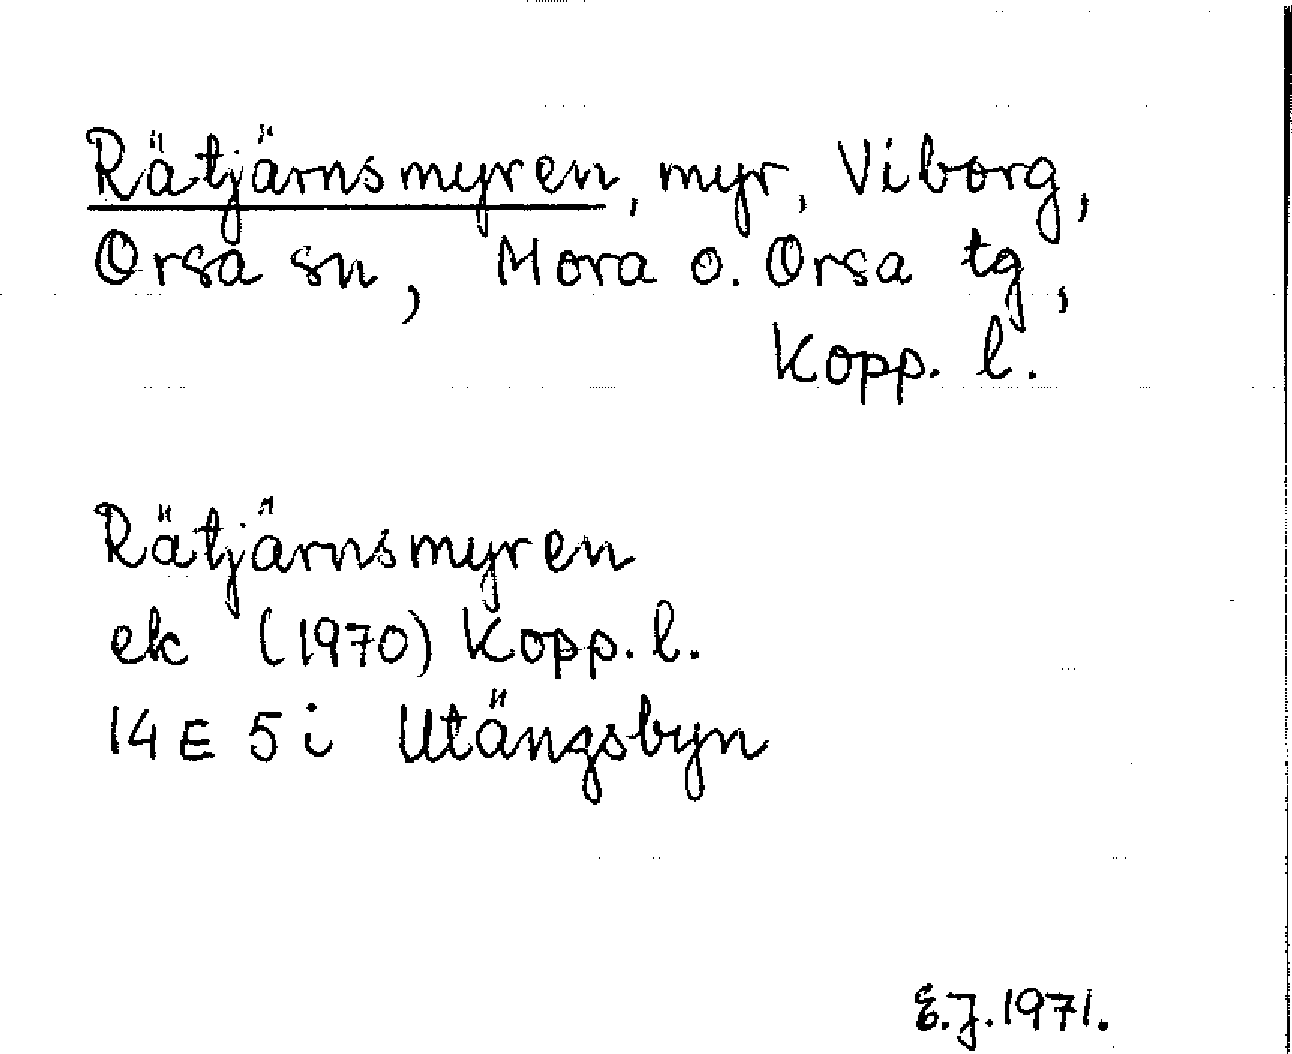 Rätjärnsmyren, myr, Viborg,
Orsa sn, Mora o. Orsa tg,
Kopp. l.
Rätjärnsmyren
ek (1970) Kopp. l.
14 E 5 i Utängsbyn
E.J. 1971.